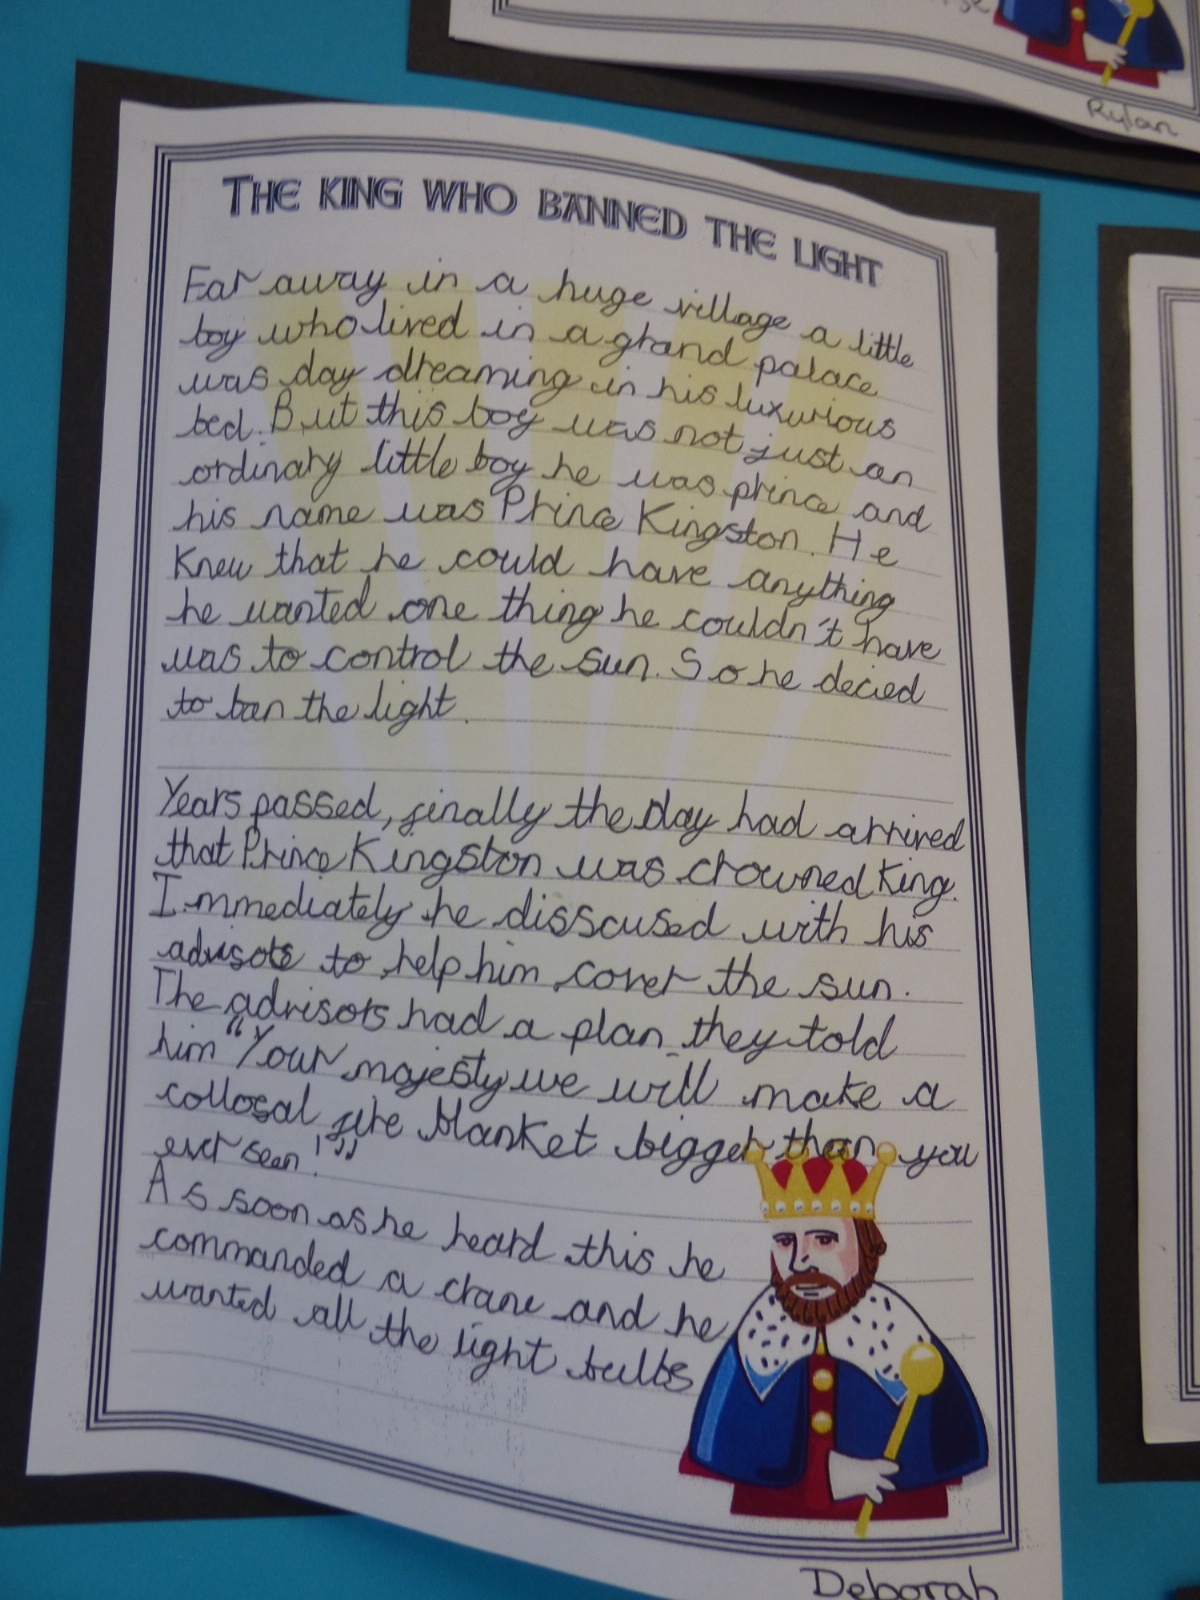 Rylan
THE KING WHO BANNED THE LIGHT
Far away in a huge village a little
boy who lived in a grand palace
was day dreaming in his luxurious
bed. But this boy was not just an
ordinary little boy he was prince and
his name was Prince Kingston. He
Knew that he could have anything
he wanted one thing he couldn't have
was to control the sun. So he decied
to ban the light.
Years passed, finally the day had arrived
that Prince Kingston was crowned King.
Immediately he disscused with his
advisors to help him cover the sun.
The advisors had a plan they told
him "Your majesty we will make a
collosal fire blanket bigger than you
ever seen!"
As soon as he heard this he
commanded a crane and he
wanted all the light bulbs
Deborah